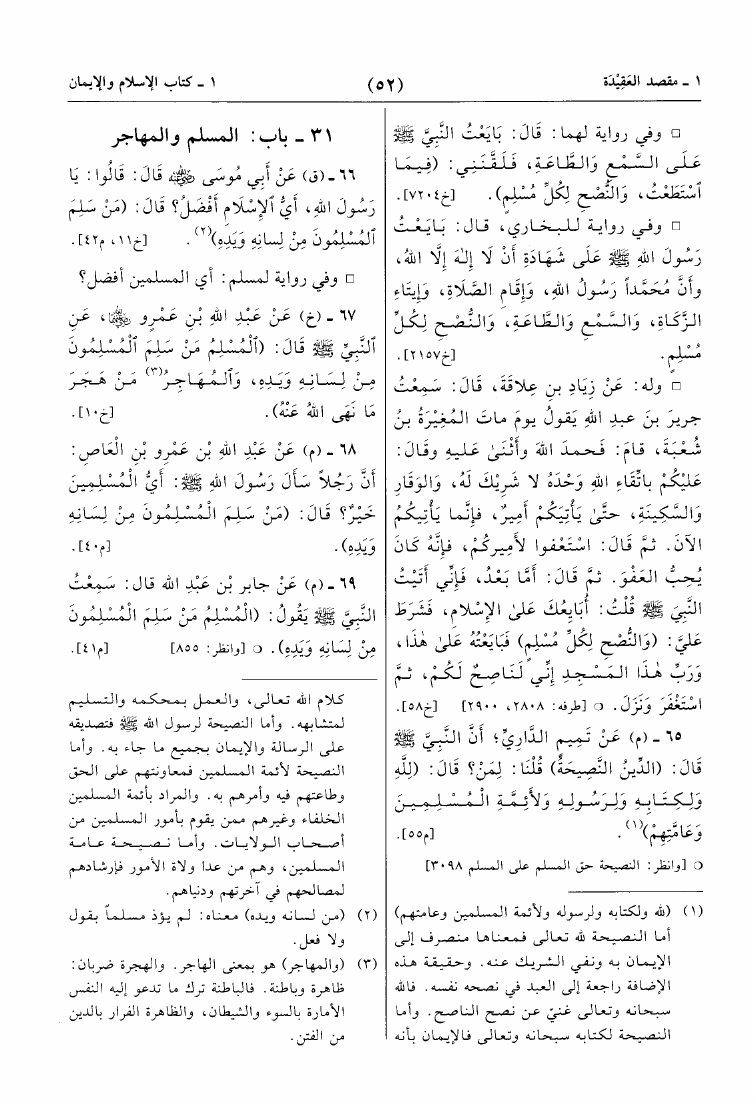 ١ ـ مقصد العَقِيْدَة (٥٢) ١ ـ كتاب الإسلام والإيمان
□ وفي رواية لهما: قَالَ: بَايَعْتُ النَّبِيَّ ﷺ
عَلَى السَّمْعِ وَالطَّاعَةِ، فَلَقَّنَنِي: (فِيمَا
اسْتَطَعْتُ، وَالنُّصْحِ لِكُلِّ مُسْلِمٍ). [خ٧٢٠٤].
□ وفي رواية للبخاري، قال: بَايَعْتُ
رَسُولَ اللهِ ﷺ عَلَى شَهَادَةِ أَنْ لَا إِلٰهَ إِلَّا اللهُ،
وأَنَّ مُحَمَّداً رَسُولُ اللهِ، وَإِقَامِ الصَّلَاةِ، وَإِيتَاءِ
الزَّكَاةِ، وَالسَّمْعِ وَالطَّاعَةِ، وَالنُّصْحِ لِكُلِّ
مُسْلِمٍ. [خ٢١٥٧].
□ وله: عَنْ زِيَادِ بنِ عِلاقَةَ، قَالَ: سَمِعْتُ
جريرَ بنَ عبدِ اللهِ يَقولُ يومَ ماتَ المُغِيْرَةُ بنُ
شُعْبَةَ، قامَ: فَحمدَ اللهَ وأَثْنَىٰ عَليهِ وقَالَ:
عَلَيْكُمْ باتِّقَاءِ اللهِ وَحْدَهُ لا شَرِيْكَ لَهُ، وَالوَقَارِ
وَالسَّكِينَةِ، حتَّىٰ يَأْتِيَكُمْ أَمِيرٌ، فإِنَّما يَأْتِيكُمُ
الآنَ. ثمَّ قَالَ: اسْتَعْفوا لأَمِيرِكُمْ، فإِنَّهُ كَانَ
يُحِبُّ العَفْوَ. ثمَّ قَالَ: أَمَّا بَعْدُ، فَإِنِّي أَتَيْتُ
النَّبِيَ ﷺ قُلْتُ: أُبَايِعُكَ عَلىٰ الإِسْلامِ، فَشَرَطَ
عَلَيَّ: (وَالنُّصْحِ لِكُلِّ مُسْلِمٍ) فَبَايَعْتُهُ عَلىٰ هٰذَا،
وَرَبِّ هٰذَا المَسْجِدِ إِنِّي لَنَاصِحٌ لَكُمْ، ثمَّ
اسْتَغْفَرَ وَنَزَلَ. ○ [طرفه: ٢٨٠٨، ٢٩٠٠] [خ٥٨].
٦٥ ـ (م) عَنْ تَمِيمٍ الدَّارِيِّ؛ أَنَّ النَّبِيَّ ﷺ
قَالَ: (الدِّينُ النَّصِيحَةُ) قُلْنَا: لِمَنْ؟ قَالَ: (لِلَّهِ
وَلِكِتَابِهِ وَلِرَسُولِهِ وَلأَئِمَّةِ الْمُسْلِمِينَ
وَعَامَّتِهِمْ)(١). [م٥٥].
○ [وانظر: النصيحة حق المسلم على المسلم ٣٠٩٨]
(١) (لله ولكتابه ولرسوله ولأئمة المسلمين وعامتهم)
أما النصيحة لله تعالى فمعناها منصرف إلى
الإيمان به ونفي الشريك عنه. وحقيقة هذه
الإضافة راجعة إلى العبد في نصحه نفسه. فالله
سبحانه وتعالى غنيّ عن نصح الناصح. وأما
النصيحة لكتابه سبحانه وتعالى فالإيمان بأنه
٣١ ـ باب: المسلم والمهاجر
٦٦ ـ (ق) عَنْ أَبِي مُوسَى رضي الله عنه قَالَ: قَالُوا: يَا
رَسُولَ اللهِ، أَيُّ الإِسْلَامِ أَفْضَلُ؟ قَالَ: (مَنْ سَلِمَ
الْمُسْلِمُونَ مِنْ لِسانِهِ وَيَدِهِ)(٢). [خ١١، م٤٢].
□ وفي رواية لمسلم: أي المسلمين أفضل؟
٦٧ ـ (خ) عَنْ عَبْدِ اللهِ بْنِ عَمْرٍو رضي الله عنهما، عَنِ
النَّبِيِّ ﷺ قَالَ: (الْمُسْلِمُ مَنْ سَلِمَ الْمُسْلِمُونَ
مِنْ لِسَانِهِ وَيَدِهِ، وَالْمُهَاجِرُ(٣) مَنْ هَجَرَ
مَا نَهَى اللهُ عَنْهُ). [خ١٠].
٦٨ ـ (م) عَنْ عَبْدِ اللهِ بْنِ عَمْرِو بْنِ الْعَاصِ:
أَنَّ رَجُلاً سَأَلَ رَسُولَ اللهِ ﷺ: أَيُّ الْمُسْلِمِينَ
خَيْرٌ؟ قَالَ: (مَنْ سَلِمَ الْمُسْلِمُونَ مِنْ لِسَانِهِ
وَيَدِهِ). [م٤٠].
٦٩ ـ (م) عَنْ جابرِ بْنِ عَبْدِ اللهِ قال: سَمِعْتُ
النبيَّ ﷺ يَقُولُ: (الْمُسْلِمُ مَنْ سَلِمَ الْمُسْلِمُونَ
مِنْ لِسَانِهِ وَيَدِهِ). ○ [وانظر: ٨٥٥] [م٤١].
كلام الله تعالى، والعمل بمحكمه والتسليم
لمتشابهه. وأما النصيحة لرسول الله ﷺ فتصديقه
على الرسالة والإيمان بجميع ما جاء به. وأما
النصيحة لأئمة المسلمين فمعاونتهم على الحق
وطاعتهم فيه وأمرهم به. والمراد بأئمة المسلمين
الخلفاء وغيرهم ممن يقوم بأمور المسلمين من
أصحاب الولايات. وأما نصيحة عامة
المسلمين، وهم من عدا ولاة الأمور فإرشادهم
لمصالحهم في آخرتهم ودنياهم.
(٢) (من لسانه ويده) معناه: لم يؤذ مسلماً بقول
ولا فعل.
(٣) (والمهاجر) هو بمعنى الهاجر. والهجرة ضربان:
ظاهرة وباطنة. فالباطنة ترك ما تدعو إليه النفس
الأمارة بالسوء والشيطان، والظاهرة الفرار بالدين
من الفتن.